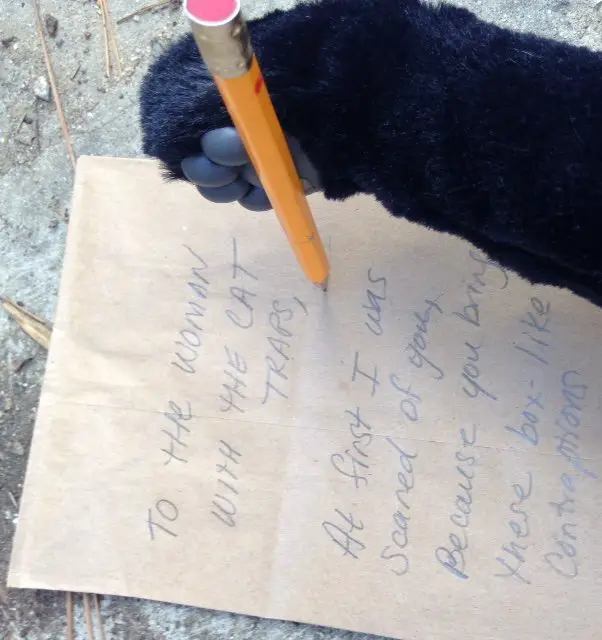 TO THE WOMAN
WITH THE CAT
TRAPS,
At first I was
Scared of you,
Because you bring
these box-like
Contraptions